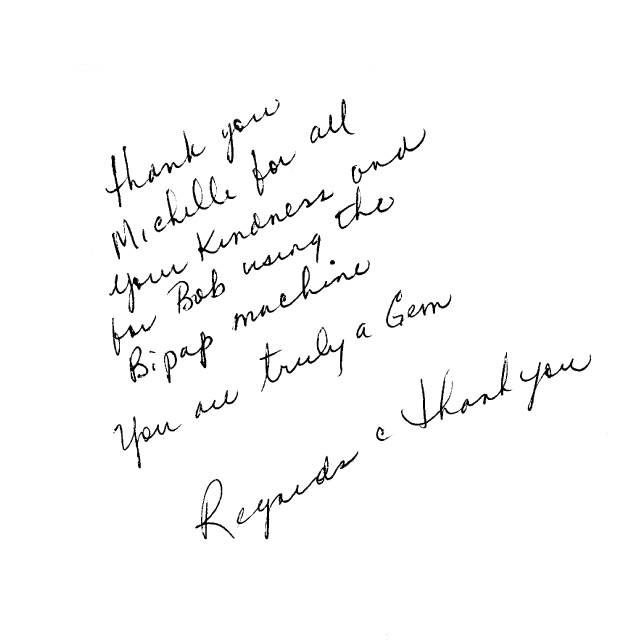 thank you
Michelle for all
your Kindness and
for Bob using the
Bipap machine
You are truly a Gem
c thank you